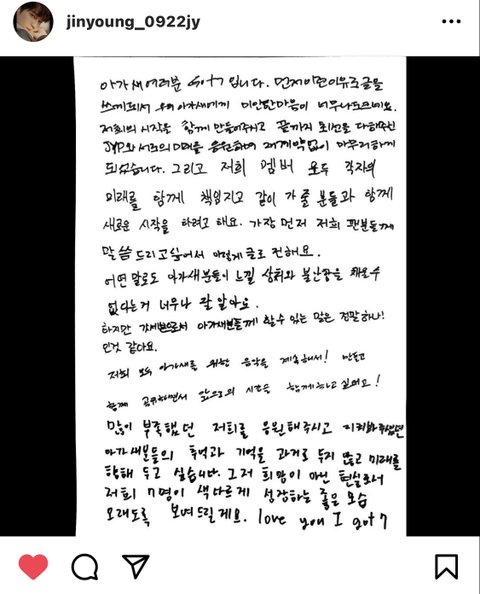 jinyoung_0922jy
아가새여러분 Got7 입니다. 먼저이런이유로글을
쓰게되서 우리 아가새에게 미안한마음이 너무나도크네요.
저희의 시작을 함께 만들어주시고 끝까지 최선을 다해주신
JYP와 서로의 미래를 응원하며 재계약없이 마무리하게
되었습니다. 그리고 저희 멤버 모두 각자의
미래를 함께 책임지고 같이 가줄 분들과 함께
새로운 시작을 하려고 해요. 가장 먼저 저희 팬분들께
말씀드리고싶어서 이렇게 글로 전해요.
어떤 말로도 아가새분들이 느낄 상처와 불안함을 채울수
없다는거 너무나 잘 알아요.
하지만 갓세븐으로서 아가새분들께 할수 있는 말은 정말하나!
인것 같아요.
저희 모두 아가새를 위한 음악을 계속해서! 만들고
함께 공유하면서 앞으로의 시간을 함께하고 싶어요!
많이 부족했던 저희를 응원해주시고 지켜봐주셨던
아가새분들의 추억과 기억을 과거로 두지 않고 미래를
향해 두고 싶습니다. 그저 희망이 아닌 현실로서
저희 7명이 색다르게 성장하는 좋은 모습
오래도록 보여드릴게요. love you I got7